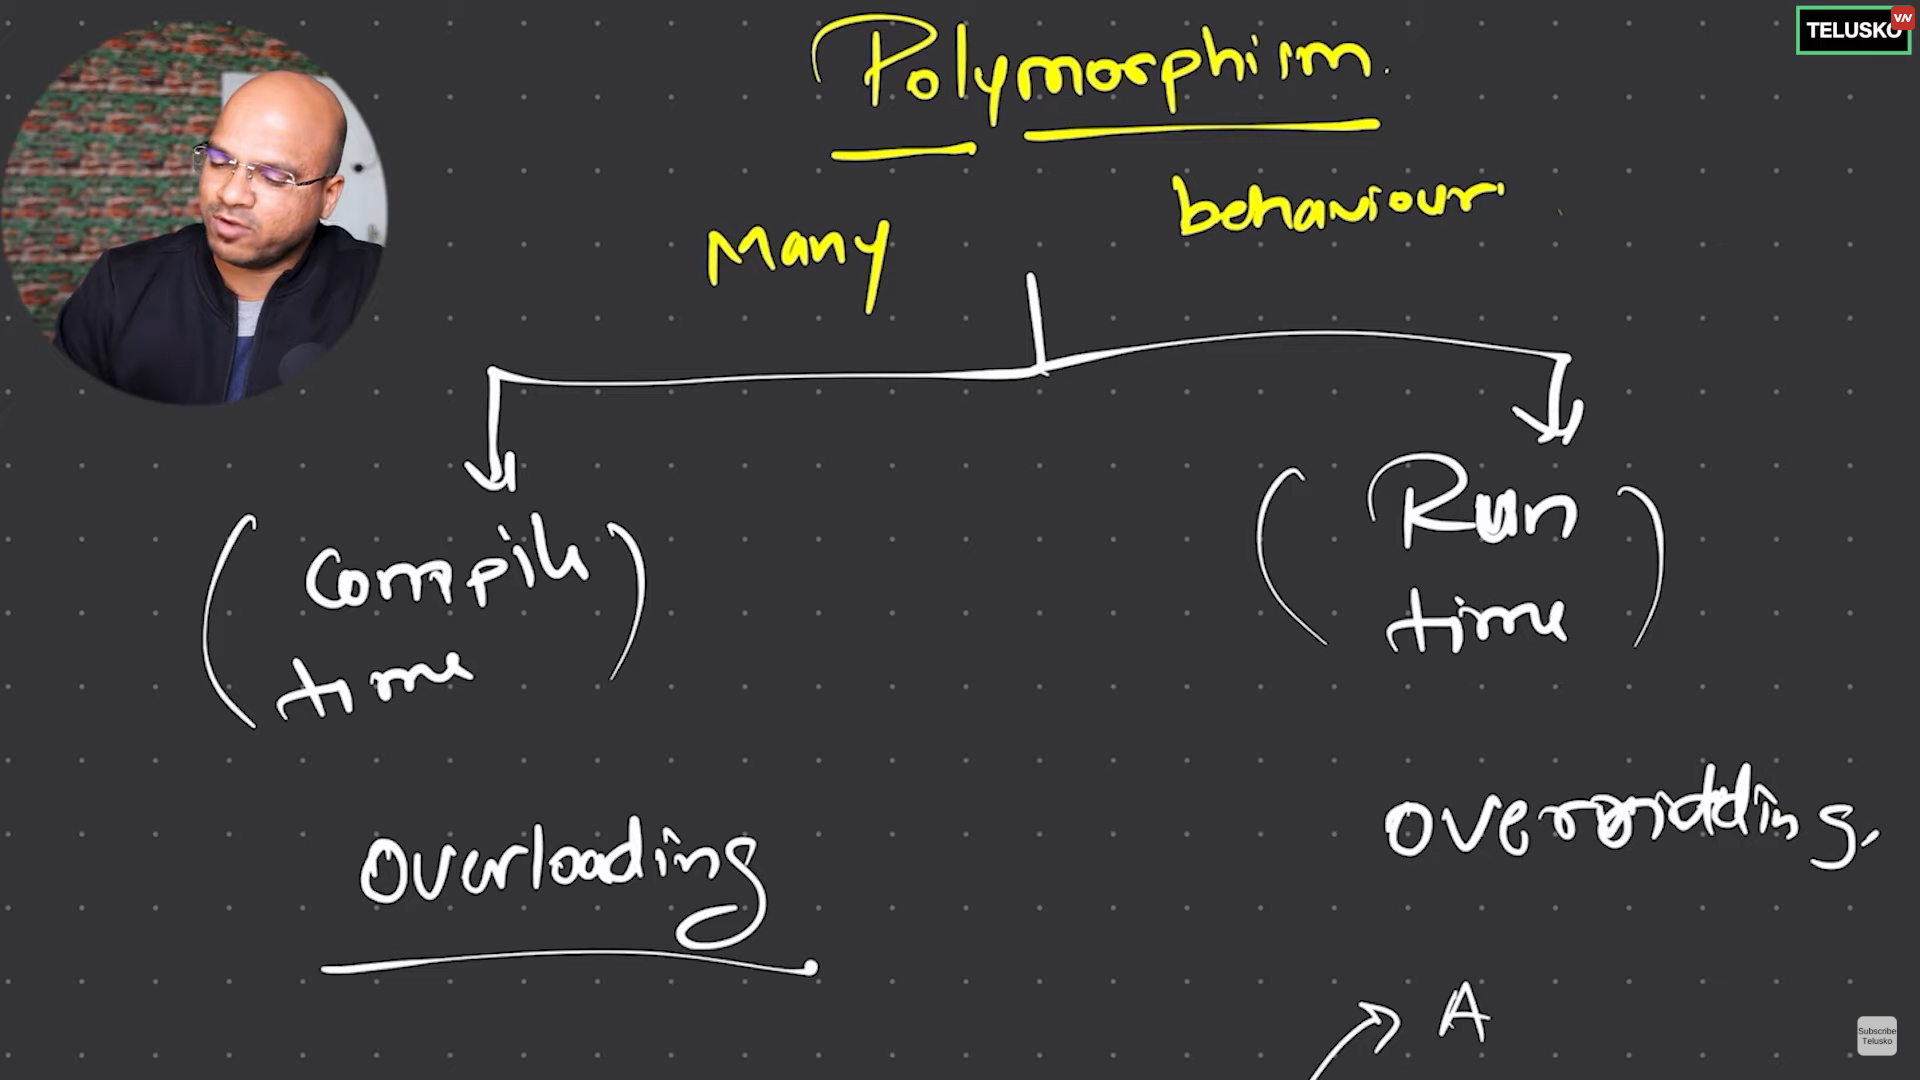 TELUSKO
Polymorphism.
Many
behaviour
(Compile
time)
(Run
time)
Overloading
Overridding.
A
Subscribe
Telusko